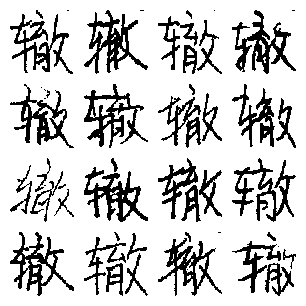 辙辙辙辙
辙辙辙辙
辙辙辙辙
辙辙辙辙